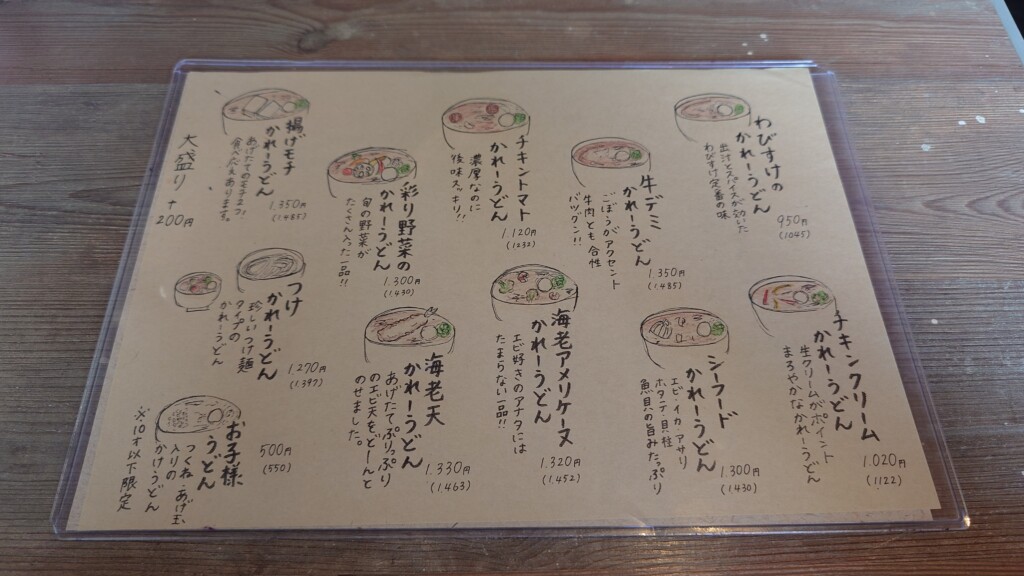 わびすけの
かれーうどん
出汁とスパイスが効いた
わびすけ定番の味
950円
(1045)
チキンクリーム
かれーうどん
生クリームがポイント
まろやかなかれーうどん
1.020円
(1122)
牛デミ
かれーうどん
ごぼうがアクセント
牛肉とも合性
バツグン!!
1.350円
(1.485)
シーフード
かれーうどん
エビ イカ アサリ
ホタテ貝柱
魚貝の旨みたっぷり
1.300円
(1.430)
チキントマト
かれーうどん
濃厚なのに
後味スッキリ!!
1.120円
(1232)
海老アメリケーヌ
かれーうどん
エビ好きのアナタには
たまらない一品!!
1.320円
(1.452)
彩り野菜の
かれーうどん
旬の野菜が
たくさん入った一品!!
1.300円
(1.430)
海老天
かれーうどん
あげたてぷりっぷり
のえび天をどーんと
のせました。
1.330円
(1.463)
揚げモチ
かれーうどん
あげたてのモチ2つ
食べごたえあります。
1.350円
(1.485)
つけ
かれーうどん
珍しいつけ麺
タイプの
かれーうどん
1.270円
(1.397)
お子様
うどん
つくね あげ玉
入りの
かけうどん
※10才以下限定
500円
(550)
大盛り+
200円